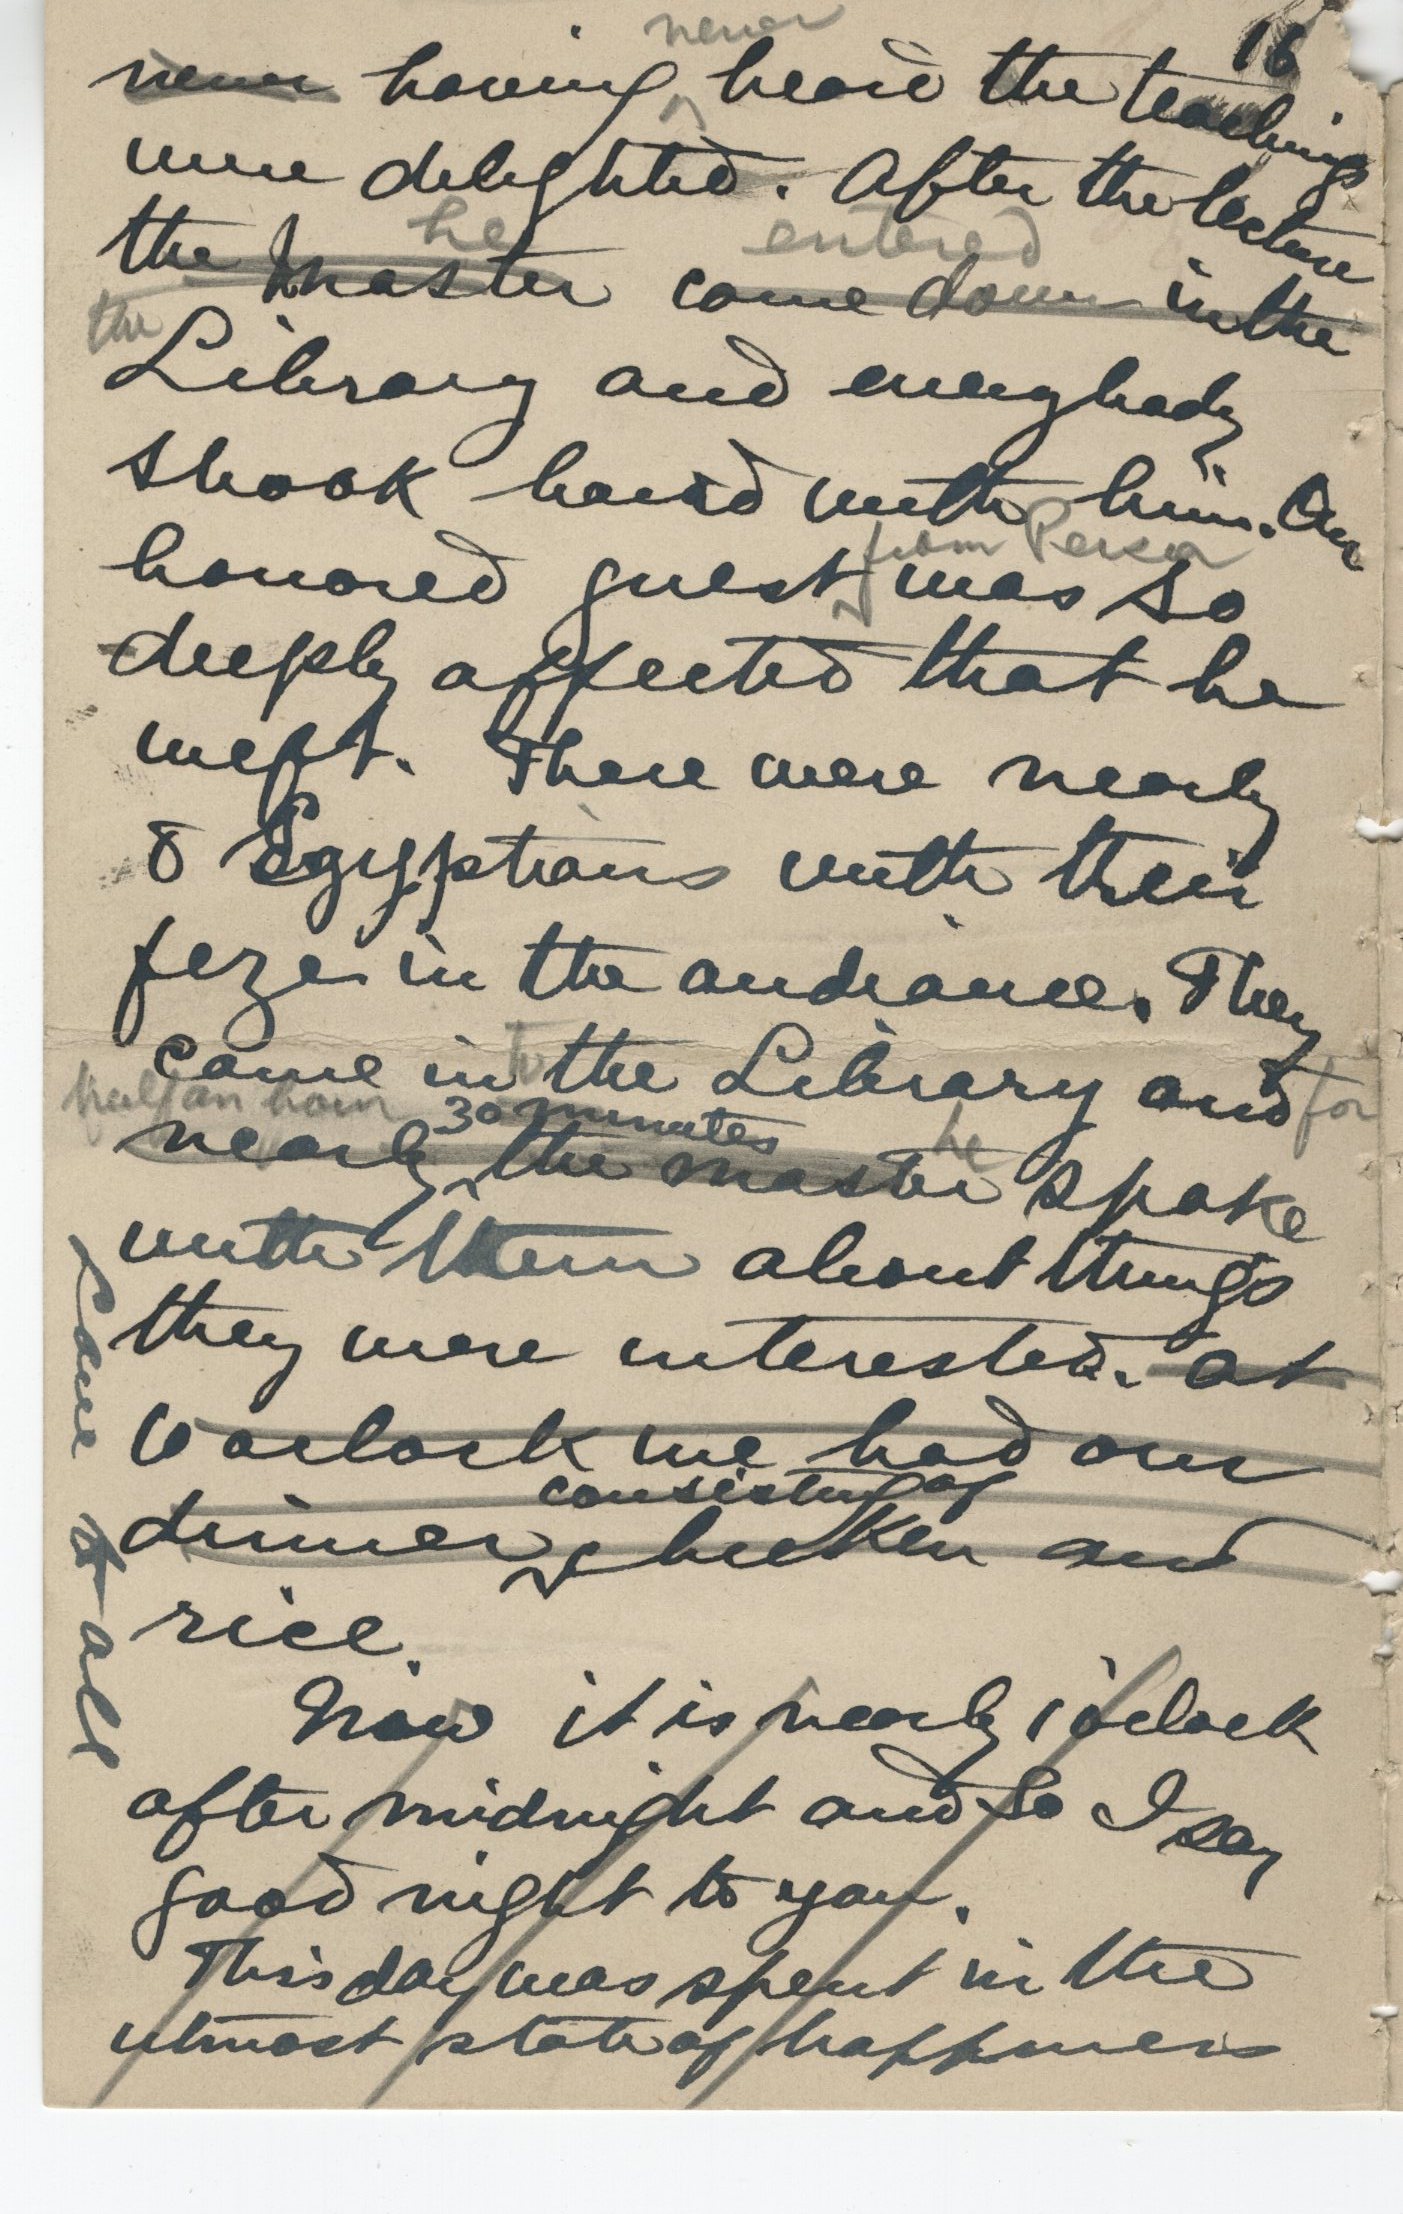 16
never
never having heard the teachings
were delighted. After the lecture
he entered
the Master came down in the
the
Library and everybody
shook hand with him. An
from Persia
honored guest was so
deeply affected that he
wept. There were nearly
8 Egyptians with their
feze in the audiance. They
to
came in the Library and for
half an hour 30 minutes he
nearly the Master spoke
with them about things
they were interested. at
10 oclock we had our
consisting of
dinner chicken and
rice.
Now it is nearly 1 oclock
after midnight and so I say
good night to you.
This day was spent in the
utmost state of happiness
Love to all